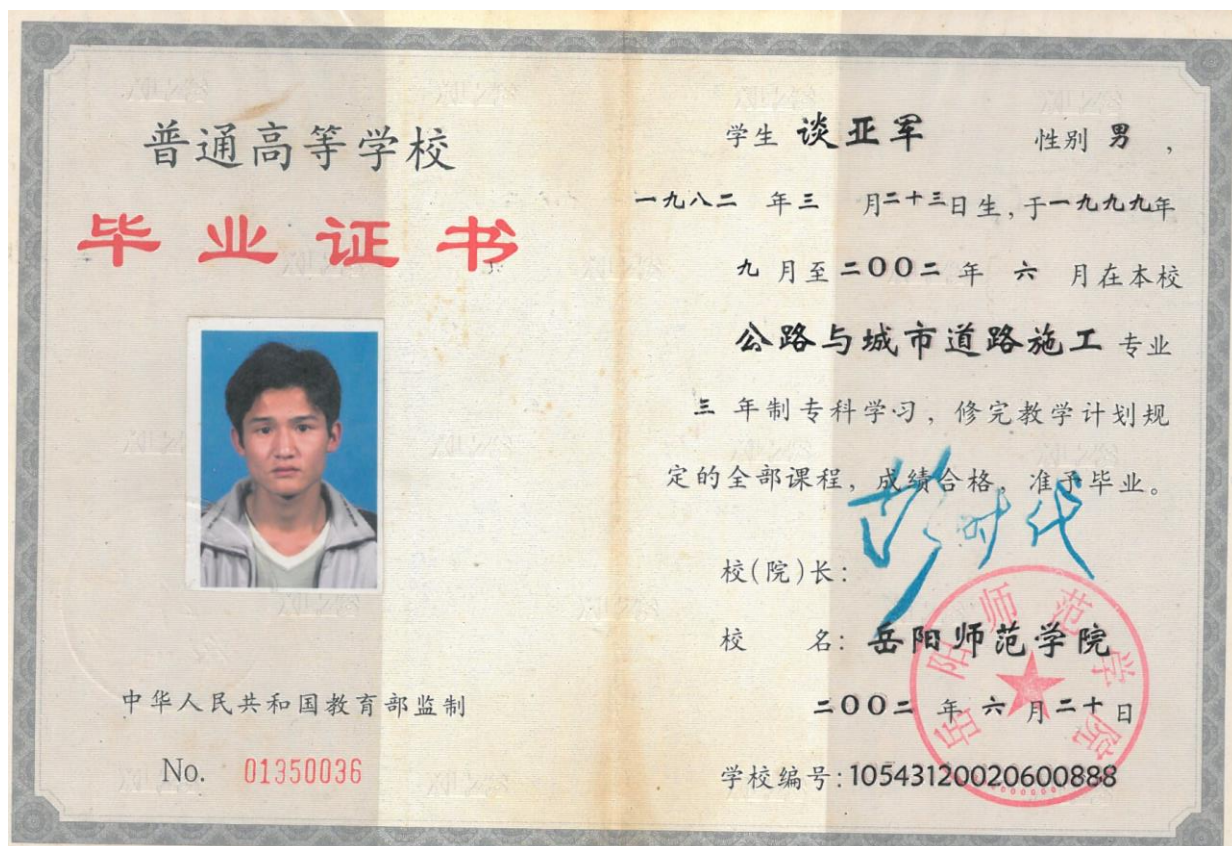 普通高等学校
毕业证书
中华人民共和国教育部监制
No. 01350036
学生 谈亚军 性别 男 ,
一九八二 年三 月二十三日生,于一九九九年
九 月至二00二 年 六 月在本校
公路与城市道路施工 专业
三 年制专科学习，修完教学计划规
定的全部课程，成绩合格，准予毕业。
校(院)长: 彭时代
校 名: 岳阳师范学院
二00二 年 六 月二十日
学校编号:10543120020600888
岳阳师范学院